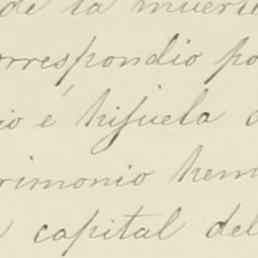 de la muerte
orrespondio po
io é hijuela d
rimonio hem
capital del